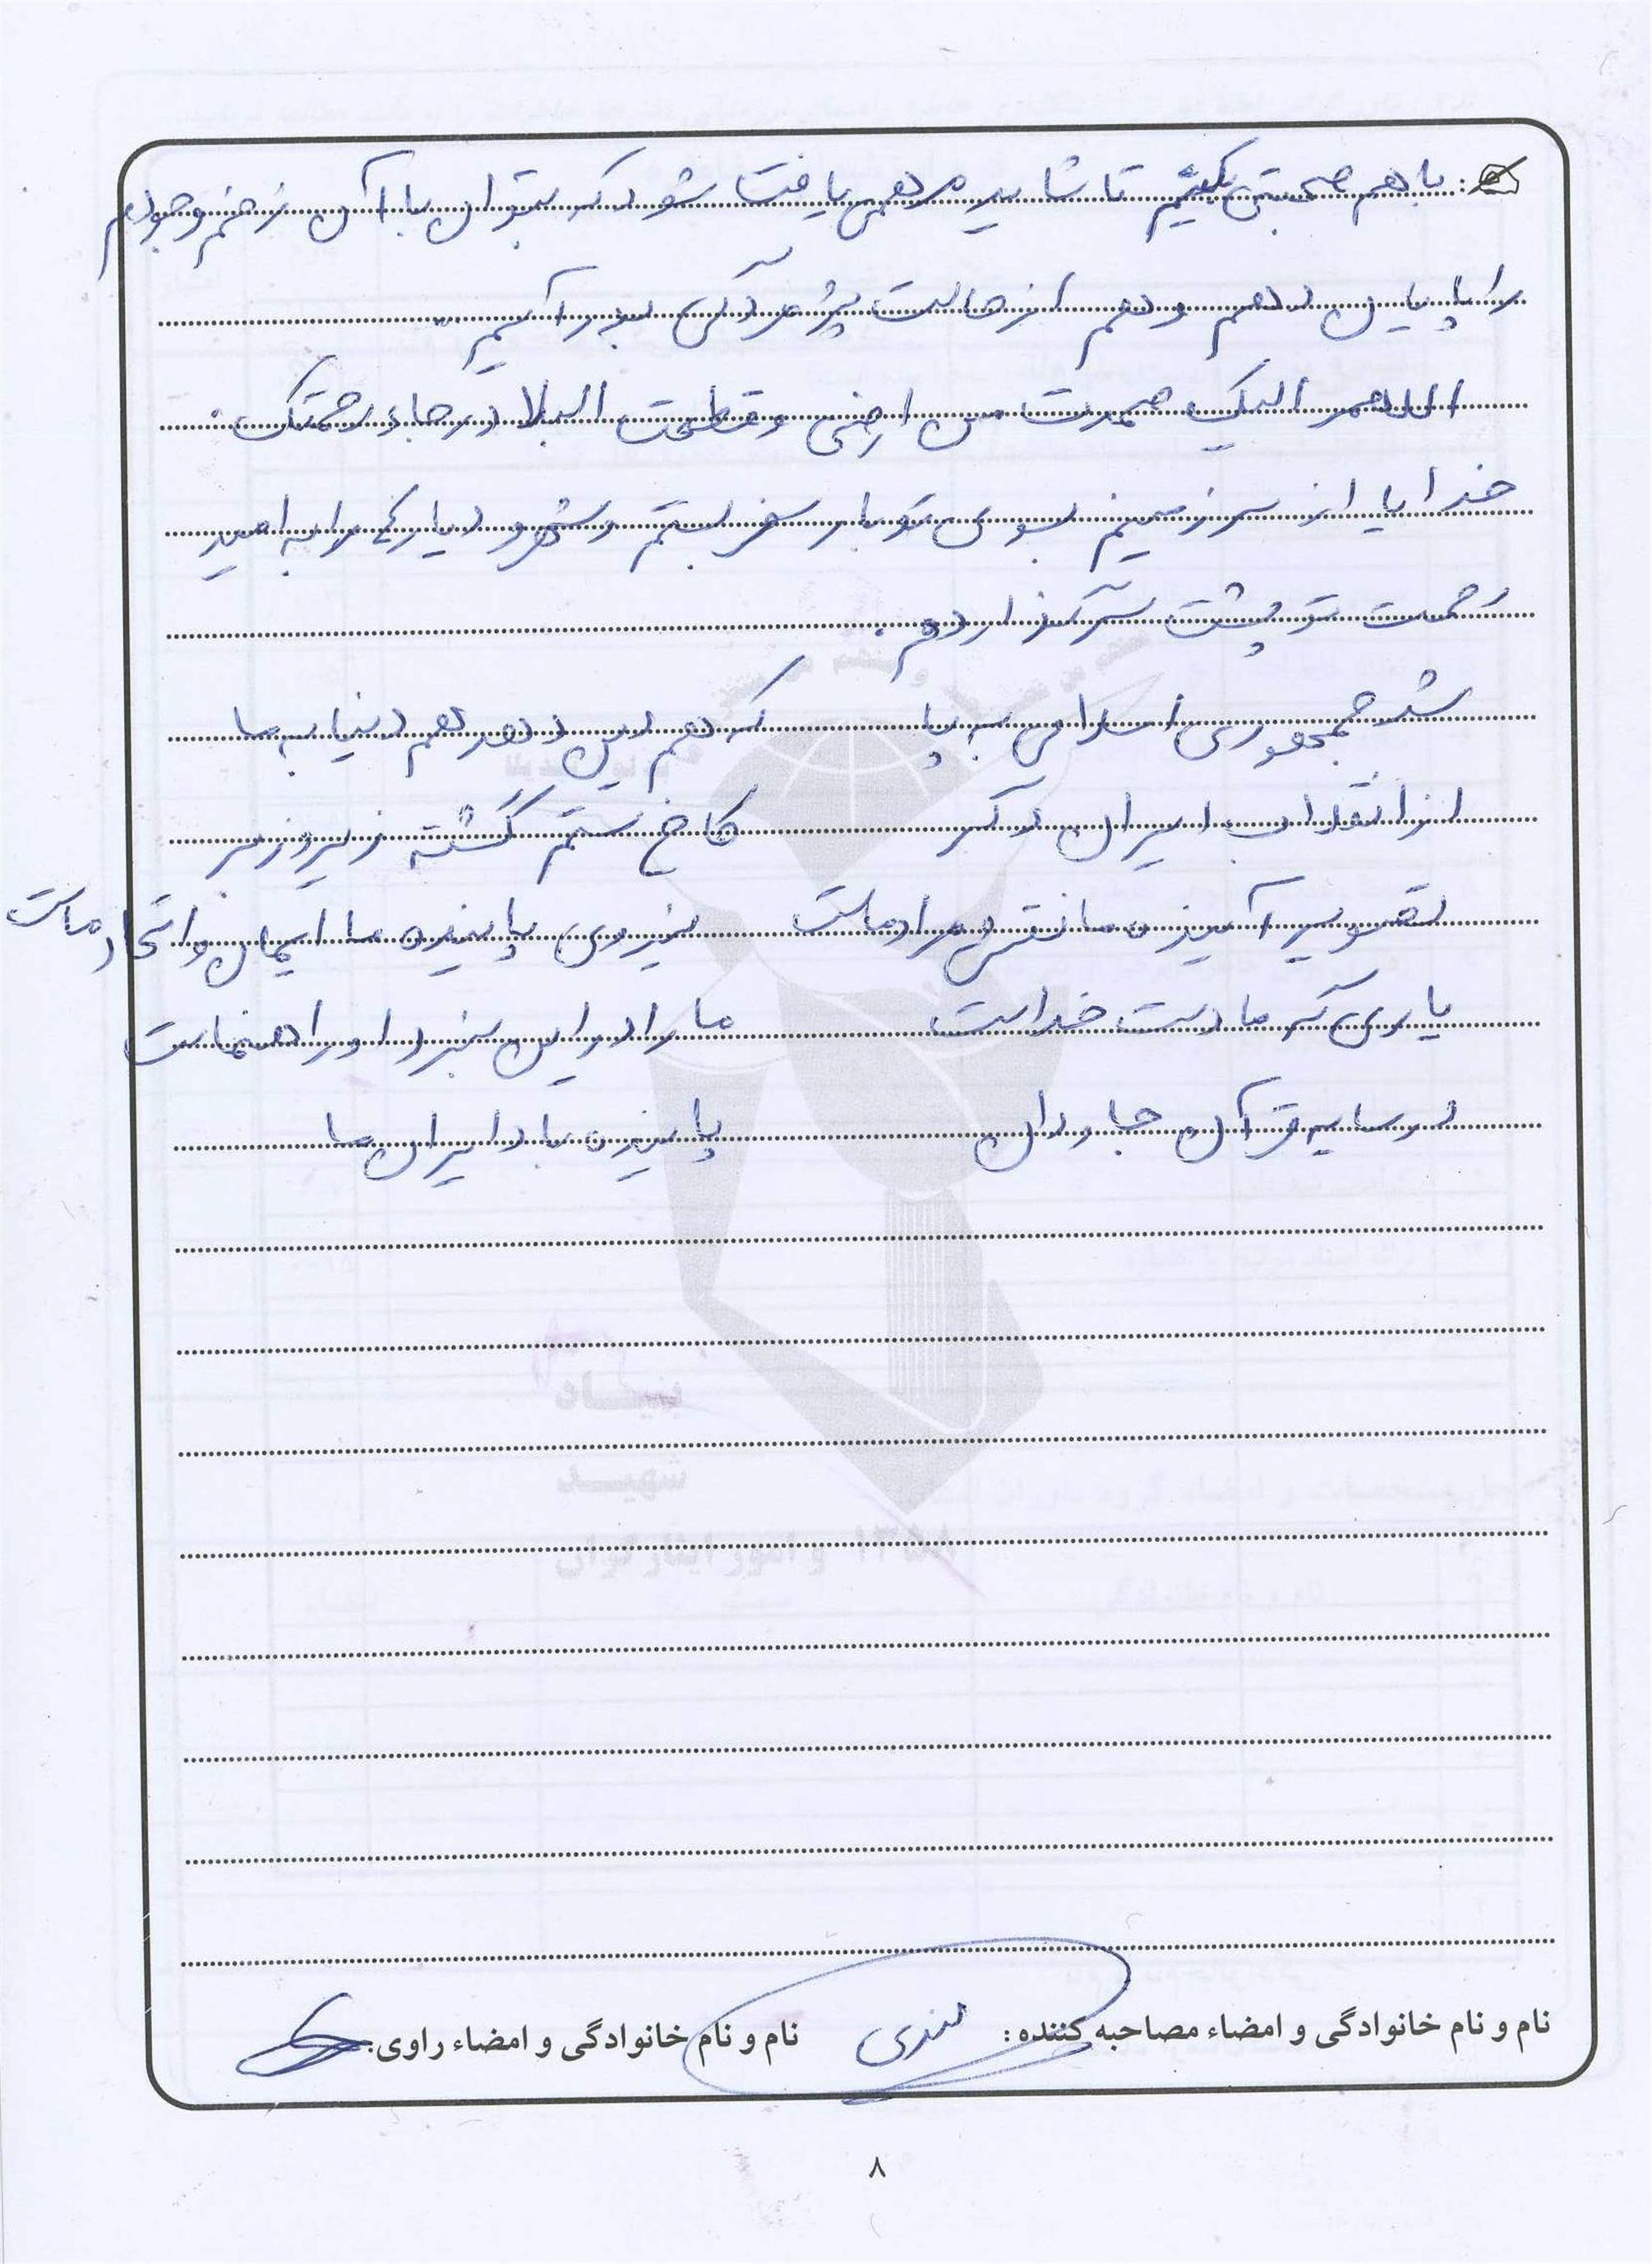 با هم صحبتی بکنیم تا شاید مرهمی یافت شود که بتوان با آن زخم وجودم
را پایان دهم و هم از حالت پژمردگی بدر آئیم"
اللهم الیک صمدت من ارضی و قطعت البلاد رجاء رحمتک.
خدایا از سرزمینم بسوی تو بار سفر بستم و شهر و دیارم را به امید
رحمت تو پشت سر گذاردم.
شد جمهوری اسلامی به پا که هم دین دهد هم دنیا به ما
از انقلاب ایران دگر کاخ ستم گشته زیر و زبر
تصویر آینده ما نقش مراد ماست نیروی پاینده ما ایمان و اتحاد ماست
یاری گر ما دست خداست ما را در این نبرد او راهنماست
در سایه قرآن جاودان پاینده بادا ایران ما
نام و نام خانوادگی و امضاء مصاحبه کننده: نام و نام خانوادگی و امضاء راوی:
۸